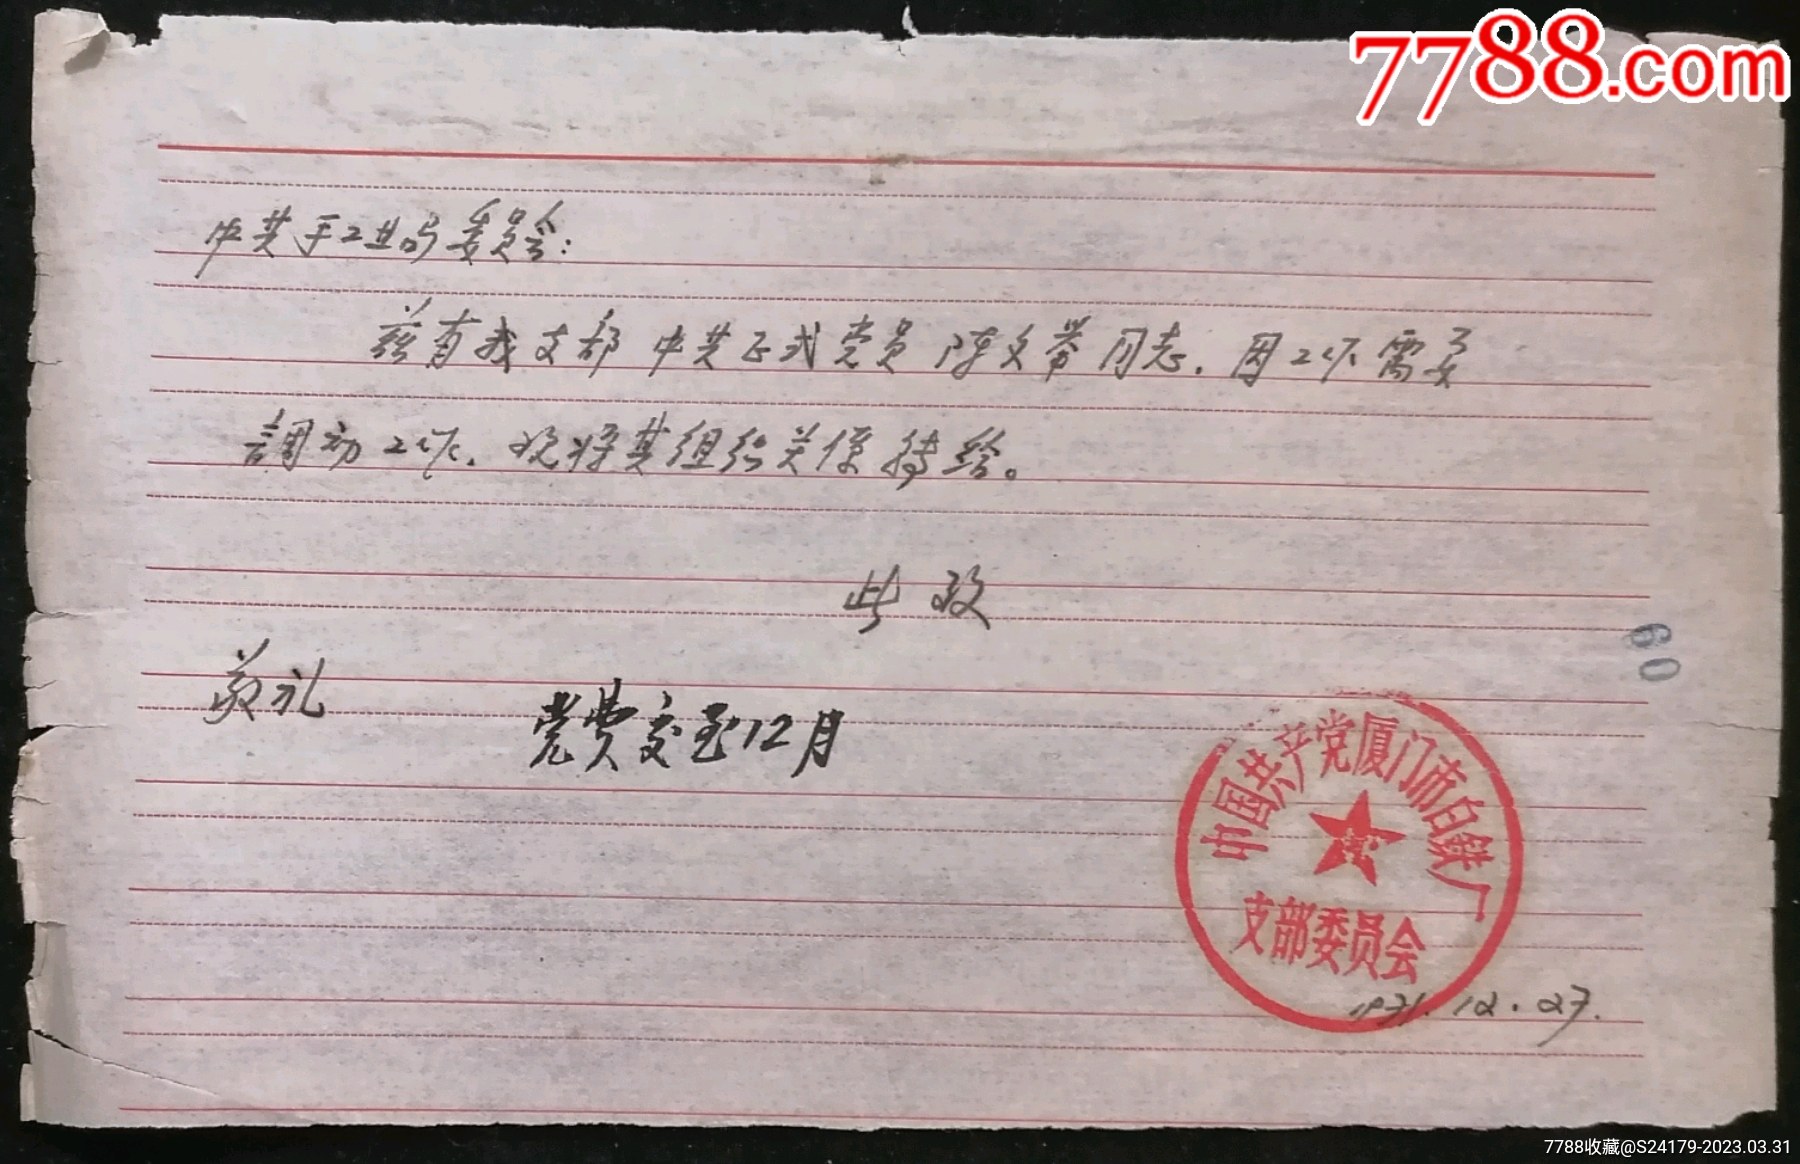 7788.com
中共手工业局委员会：
兹有我支部中共正式党员陈文举同志．因工作需要
調动工作．现将其组织关係转给。
此致
敬礼
党费交至12月
60
中国共产党厦门市白鉄厂
支部委员会
1971.12.27.
7788收藏@S24179-2023.03.31